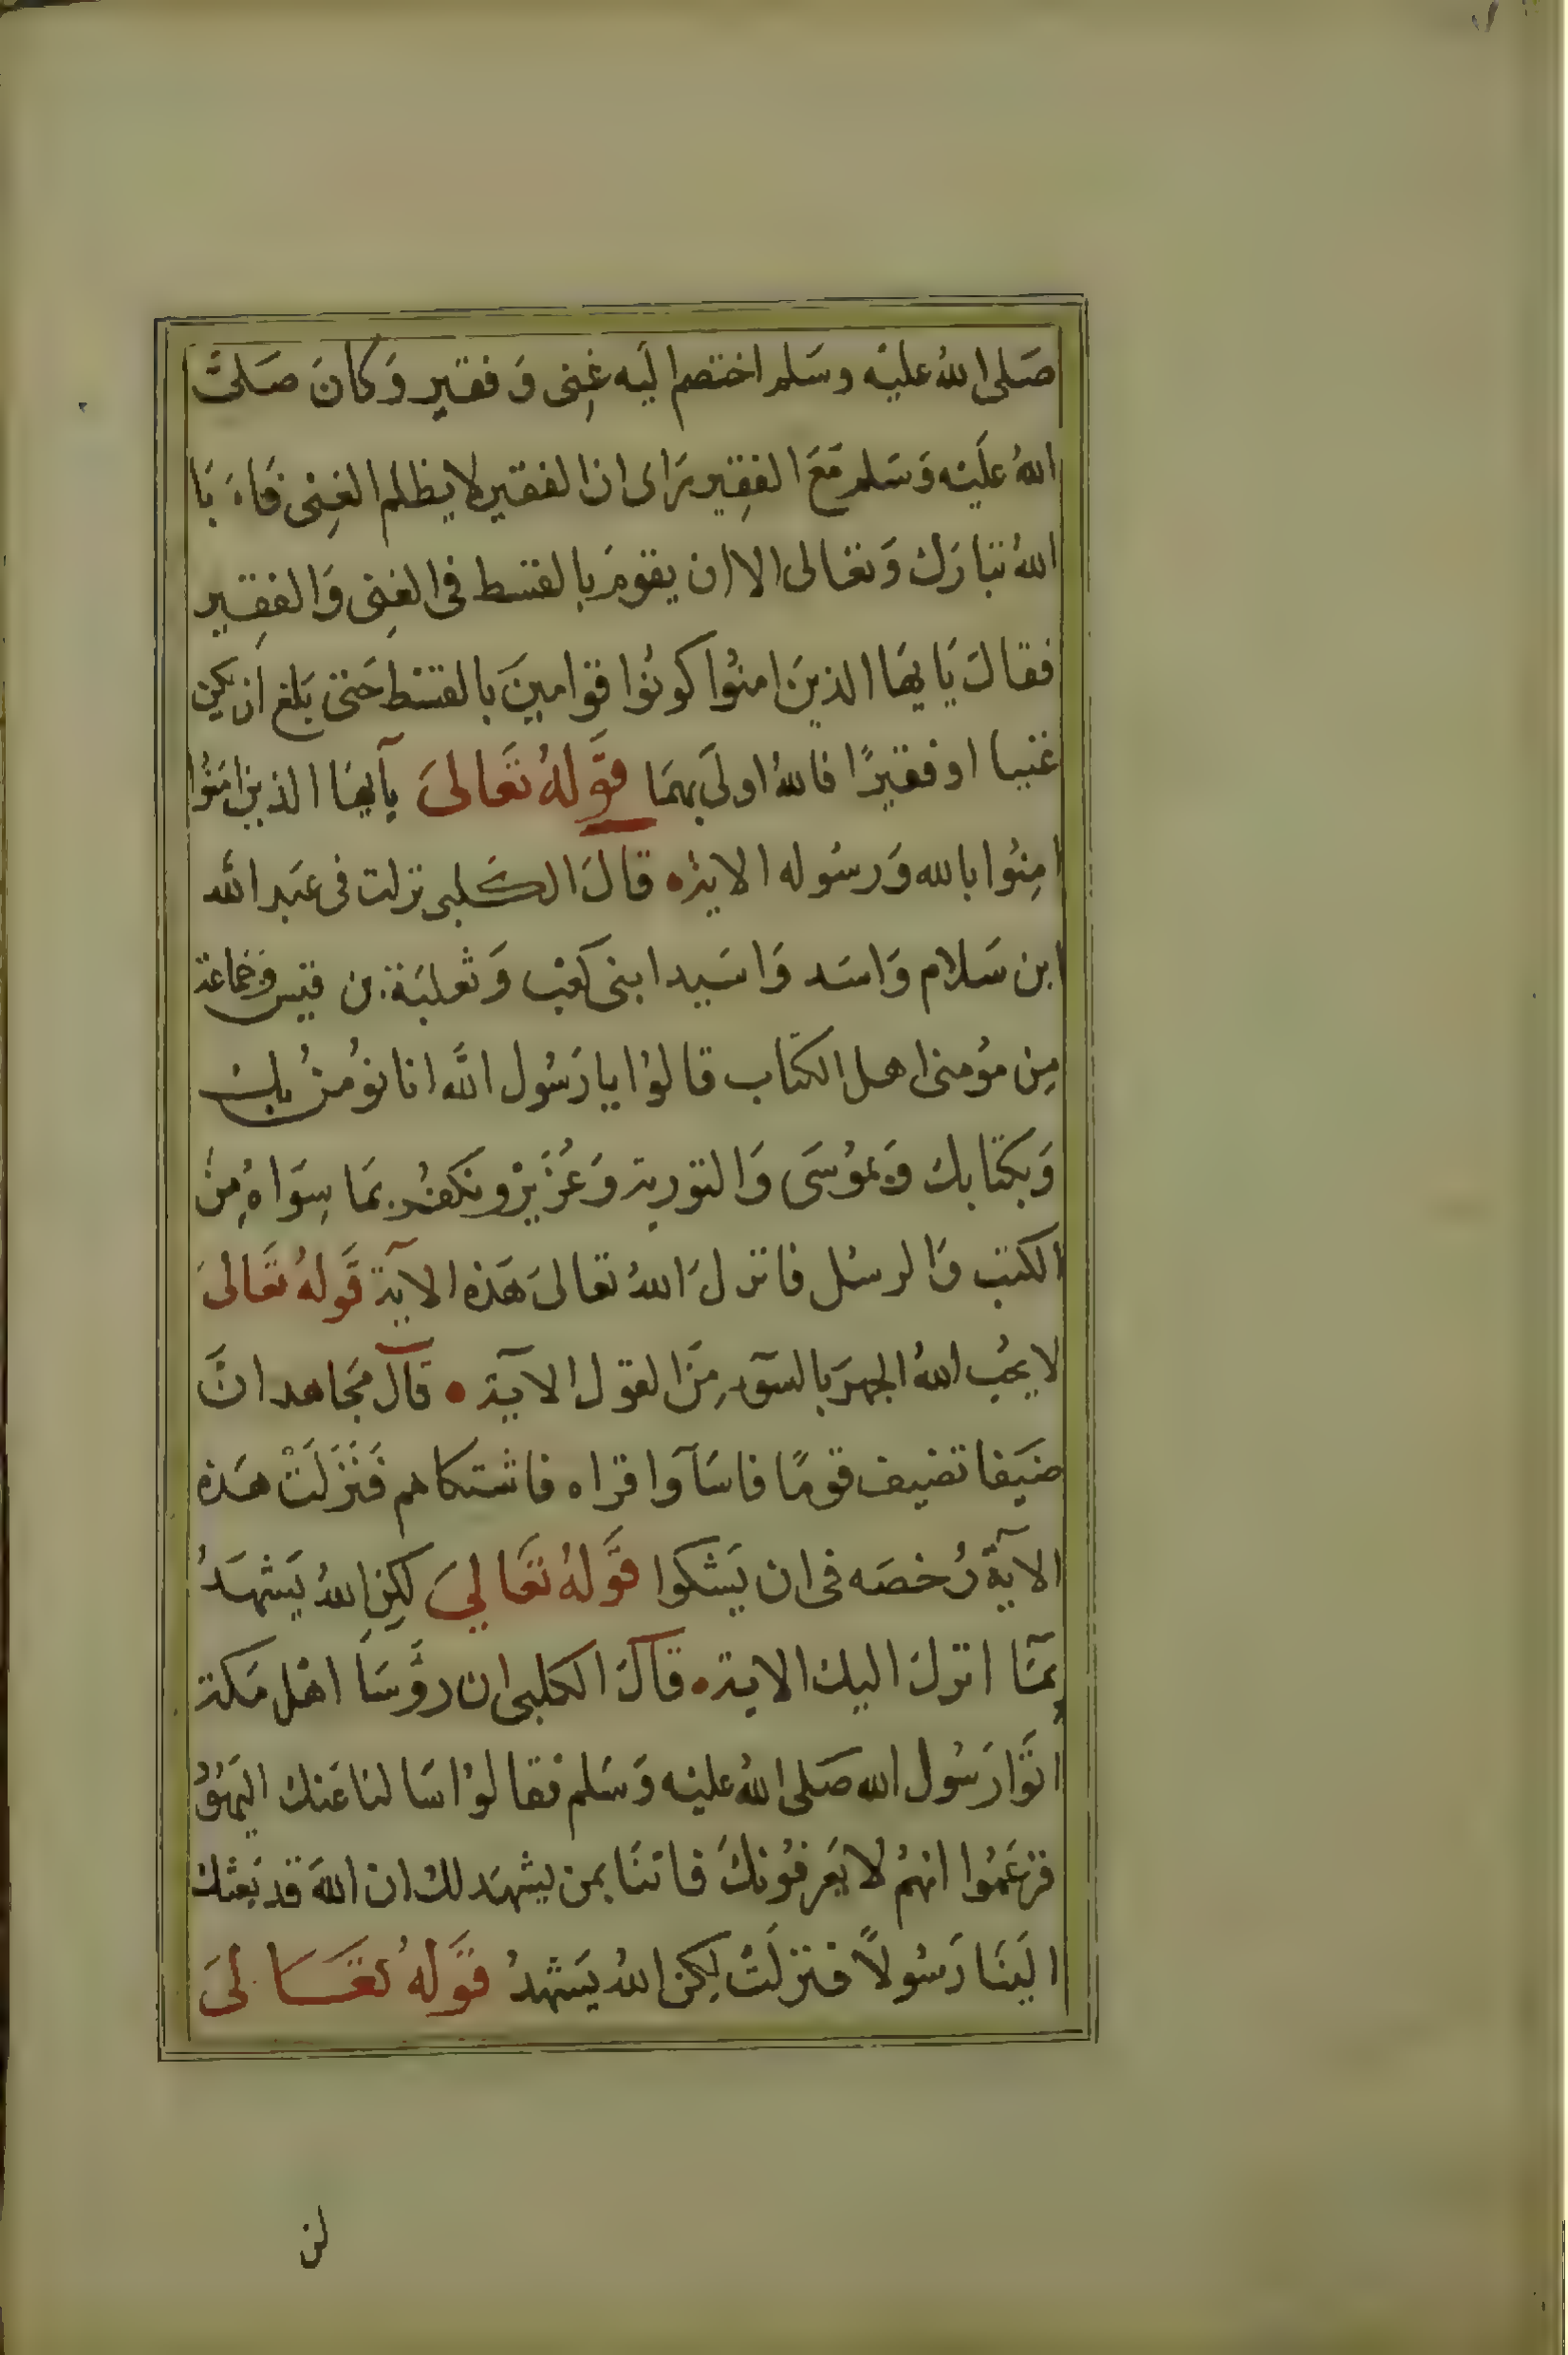 صَلى اللهُ عليْه وسَلم اختصم اليَه غِنى وَفقير وَكانَ صَلىَّ
اللهُ علَيْه وَسَلم مَعَ الفقِير يَرَاى ان الفقير لا يظلم الغِنى فَاَ بَا
اللهُ تبارَك وَتعَالى الا ان يقومَ بالقسْط فى الغِنى وَالفقِير
فقالَ يَايهَا الذينَ امنُوا كونُوا قوامينَ بالقسْط حَتى بَلغ ان يكن
غنيا او فقيرًا فاللهُ اولىَ بهمَا قَولهُ تَعَالىَ يآيهَا الذين امَنُوا
امِنُوا بالله وَرسُوله الايَة قالَ الكَلبى نزلت فى عَبد الله
ابن سَلام وَاسَد وَاسَيد ابنى كعْب وَثعلبَة بن قيس وَجَماعَة
مِن مؤمنى اهل الكتاب قالوُا يارَسُول الله انا نؤمنُ بك
وَبكتابك وَبموُسَى وَالتورية وَعُزَيْر ونكفُر بمَا سِوَاهُ مِنَ
الكتب وَالرسُل فانزلَ اللهُ تعالىَ هَذه الآية قَولهُ تَعَالىَ
لا يحُب اللهُ الجهرَ بالسّوءِ مِنَ القول الآية قال مجَاهد انَّ
ضيَفا تضيف قومًا فاسَآوا قراه فاشتكاهم فَنَزَلَتْ هَذه
الآيَة رُخصَه فى ان يَشكوا قَولهُ تعَالىَ لكِنِ اللهُ يَشهَدُ
بمَآ انزلَ اليك الاية قالَ الكلبى ان رؤسَا اهْل مَكة
اتَوا رَسُول الله صَلى اللهُ عليْه وَسَلم فقالوُا سَالنا عَنك اليَهوُدَ
فزعَمُوا انهمُ لا يَعرفوُنكَ فاتنَا بمن يشهَد لك ان اللهَ قد بَعثك
اليَنَا رَسُولاً فنزلَتْ لكِن اللهُ يَشهدُ قَولهُ تعَالىَ
لن